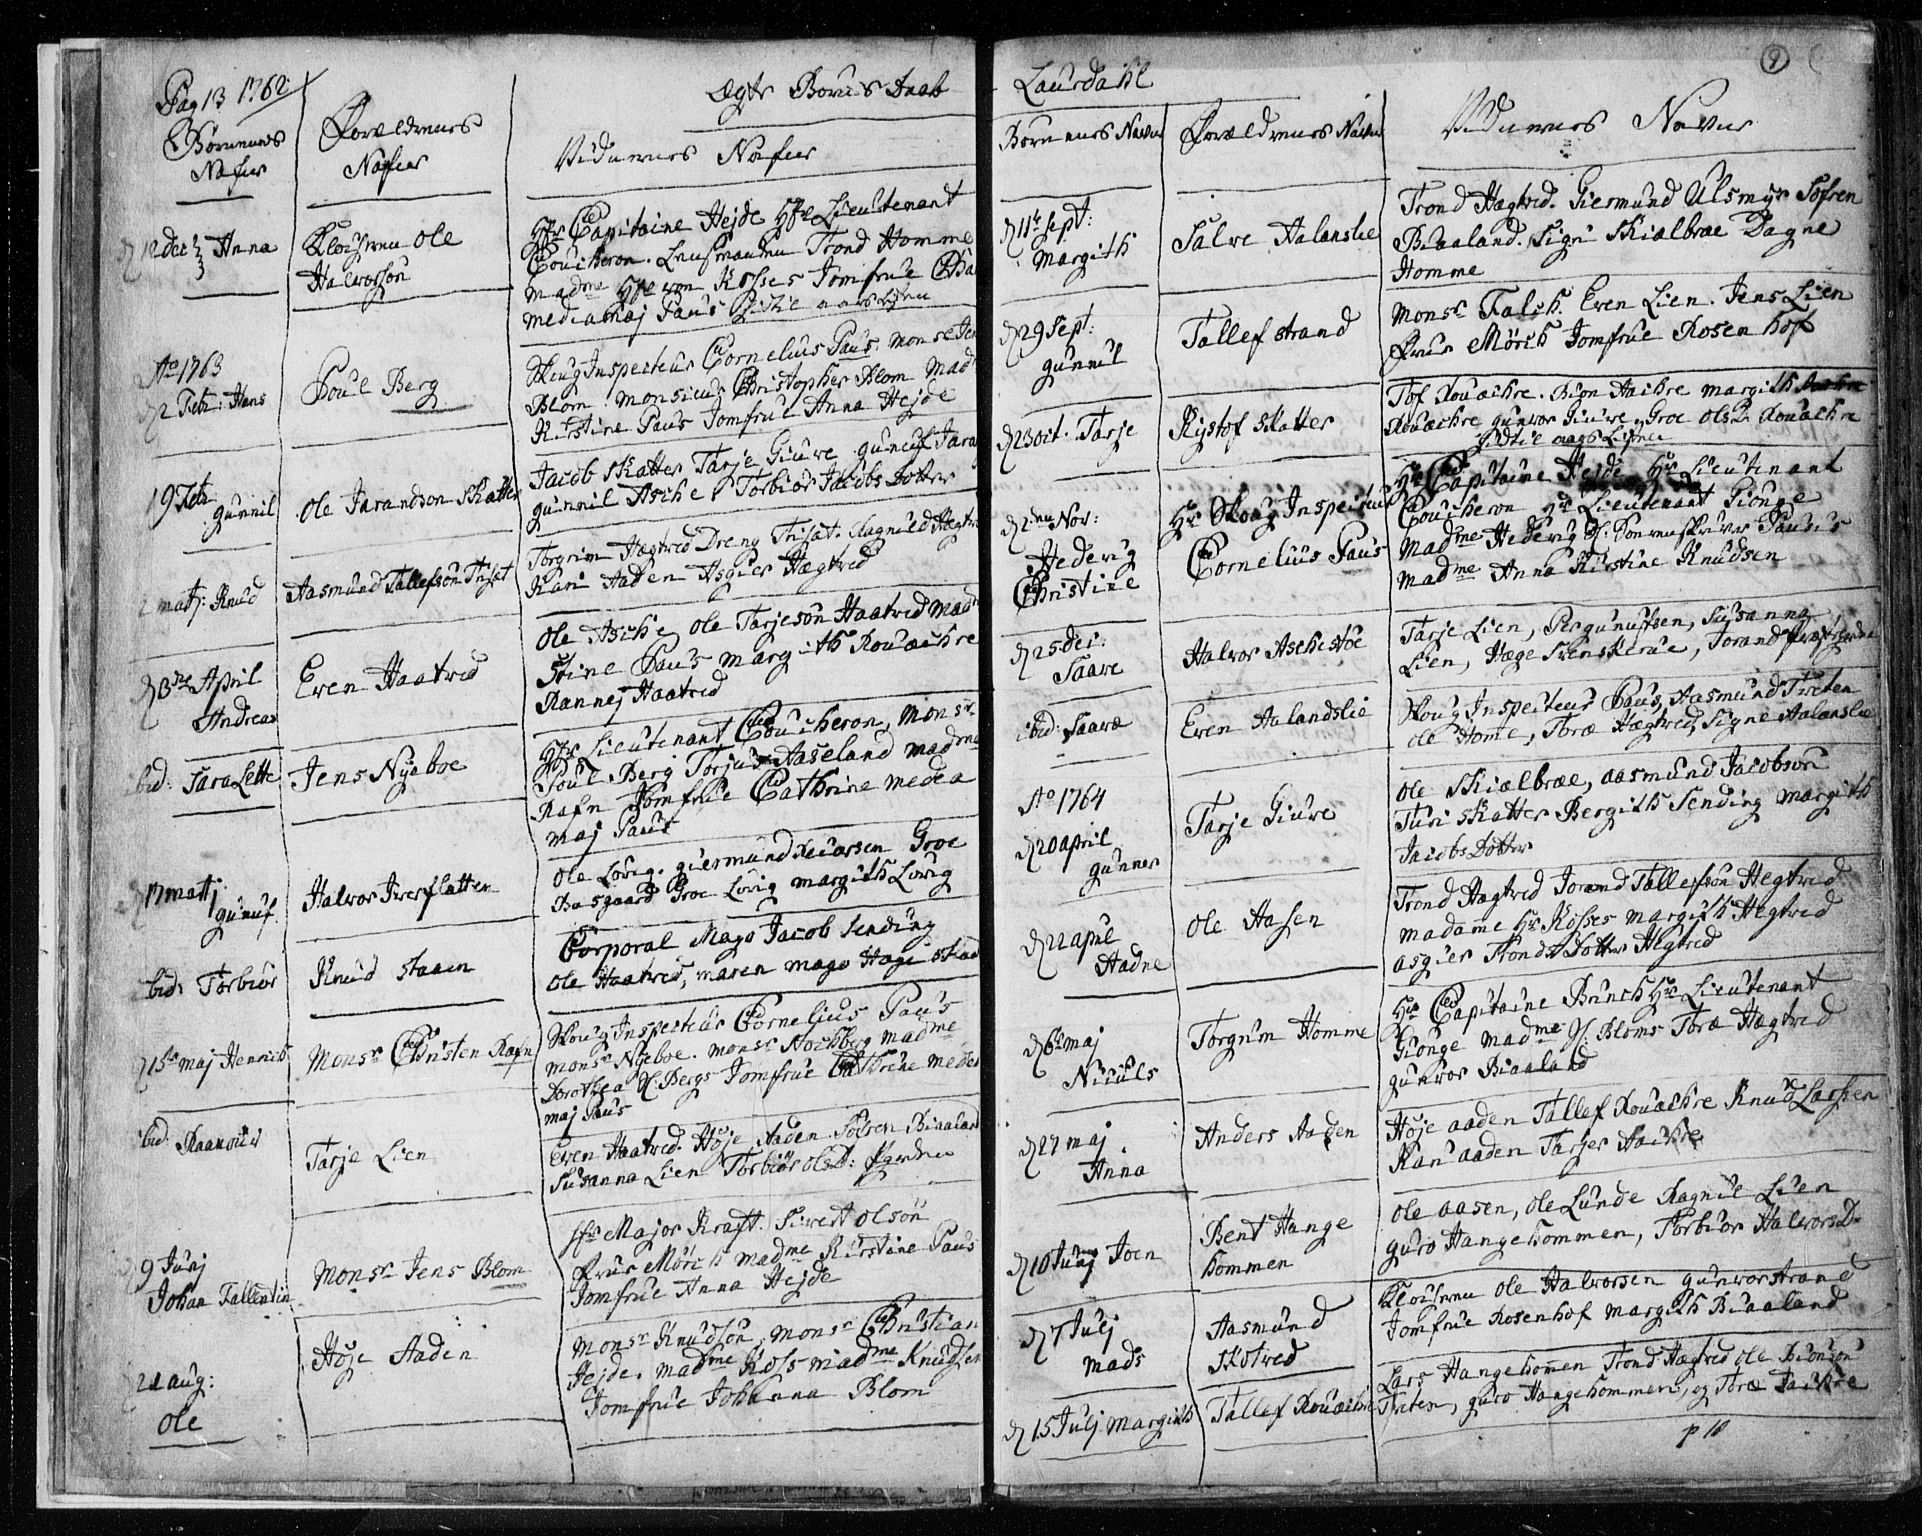 Pag 13 1762
Ægte Børns Daab
Børnenes
Nafne
Forældrenes
Nafne
Vidnernes Nafne
12 dec: Anna
Klocheren Ole
Halvorson
Hr Capitaine Hejde Hr Lieutenant
Coucheron. Lensmanden Trond Homme
madme Hr von Kosses Jomfrue
medea maj Paus
Ao 1763
d 2 Febr: Hans
Poul Berg
Skoug Inspecteur Cornelius Paus. monsr Jens
Blom. monsieur Christopher Blom Madme
Kirstine Paus Jomfrue Anna Hejde
19 Febr
gunnil
Ole Jarandson Skatter
Jacob Skatter Tarje Giure gunuf
gunnil Asche, Torbiør Jacobs Dotter
2 matj: Knud
Aasmund Tallefson Trisæt
Torgrim Hægtved Dreng Trisæt. Ragnild Hægtved
Kari Aaden Asgier Hægtved
d 3die April
Andreas
Even Haatved
Ole Asche, Ole Tarjeson Haatved Madme
Stine Paus margith Rouachre
Rannej Haatved
ibid: Sara Lette
Jens Nyeboe
Hr Lieutenant Coucheron, Monsr
Poul Berg Torju Aaseland madme
Rafn Jomfrue Cathrine medea
maj Paus
17 matj
gunuf.
Halvor Iverslatten
Ole Lovig. giermund Groe
Aasgaard Groe Lovig margith Lovig
ibid: Torbiør
Knud Staaen
Corporal Mago Jacob Sending
Ole Haatved, maren mago Hæge
d 15de maj Henrich
Monsr Christen Rafn
Skoug Inspecteur Cornelius Paus
monsr Nyeboe. monsr Stochberg madme
Dorothea H: Bergs Jomfrue Cathrine medea
maj Paus
ibid:
Tarje Lien
Even Haatved. Høje Aaden Sofren Biaaland
Susanna Lien Torbiør Ols D:
9 Junj
Johan Fallentin
Monsr Jens Blom
Hr Major Kraft. Sivert Olsøn
Frue Mørch Madme Kirstine Paus
Jomfrue Anna Hejde
21 aug:
Ole
Høje Aaden
Monsr Knudsøn, monsr Christian
Hejde. madme Koss madme Knudsen
Jomfrue Johanna Blom
9
Laurdahl
Børnenes Navne
Forældrenes Navne
Vidnernes Navne
d 11te Sept:
Margith
Salve Aalanslie
Trond Hægtved. Giermund Ulsmyr Sofren
Biaaland. Sigri Skialbræ Dagne
Homme
d 29 Sept:
gunnul
Tallef Strand
Monsr Falch Even Lien. Jens Lien
Frue Mørch Jomfrue Rosenhof
d 23 oct. Tarje
Kistof Skatter
Tof Rouachre. Bion Aachre margith
Rouachre gunvor Giure, Groe Ols D. Rouachre
d 2den Nov:
Hedevig
Christine
Hr Skoug Inspecteur
Cornelius Paus
Hr Capitaine Hejde Hr Lieutenant
Coucheron Hr Lieutenant Gionge
Madme Hedevig Sr. Sorenskriver Pauus
Madme Anna Kirstine Knudsen
d 25 dec:
Saave
Halvor Aschestøe
Tarje Lien, Per gunufsen, Susanna
Lien, Hæge Svenskerue, Jorand
ibid: Saavæ
Even Aalandslie
Skoug Inspecteur Paus Aasmund Treten
Ole Home, Toræ Hægtved, Signe Aalanslie
Ao 1764
d 20 april
gunner
Tarje Giure
Ole Skialbræ, Aasmund Jacobson
Turi Skatter Bergith Sending margith
Jacobs Dotter
d 22 april
Aadne
Ole Aasen
Trond Hægtved Jorand Tallefson Hægtved
madame Hr Kosses margith Hægtved
asgier Trond Dotter Hægtved
d 6te maj
Niculs
Torgrim Homme
Hr Capitaine Brinch Hr Lieutenant
Gionge madme H: Bloms Toræ Hægtved
gunvor Biaaland
d 27 maj
Anna
Anders Aaden
Høje aaden Tallef Rouachre Knud Larsen
Kari aaden Tarjer Aachre
d 10 Junj Joen
Bent Hange
hommen
Ole aasen, Ole Lunde Ragnil Lien
guro Hangehommen, Torbiør Halvors D.
d 7 Julj
mads
Aasmund
Skotved
Klocheren Ole Halvorsen gunvor Strand
Jomfrue Rosenhof margith Biaaland
d 15 Julj margith
Tallef Rouachre
Lars Hangehommen Trond Hægtved Ole Bionson
Treten, guro Hangehommen, og Toræ
p 10